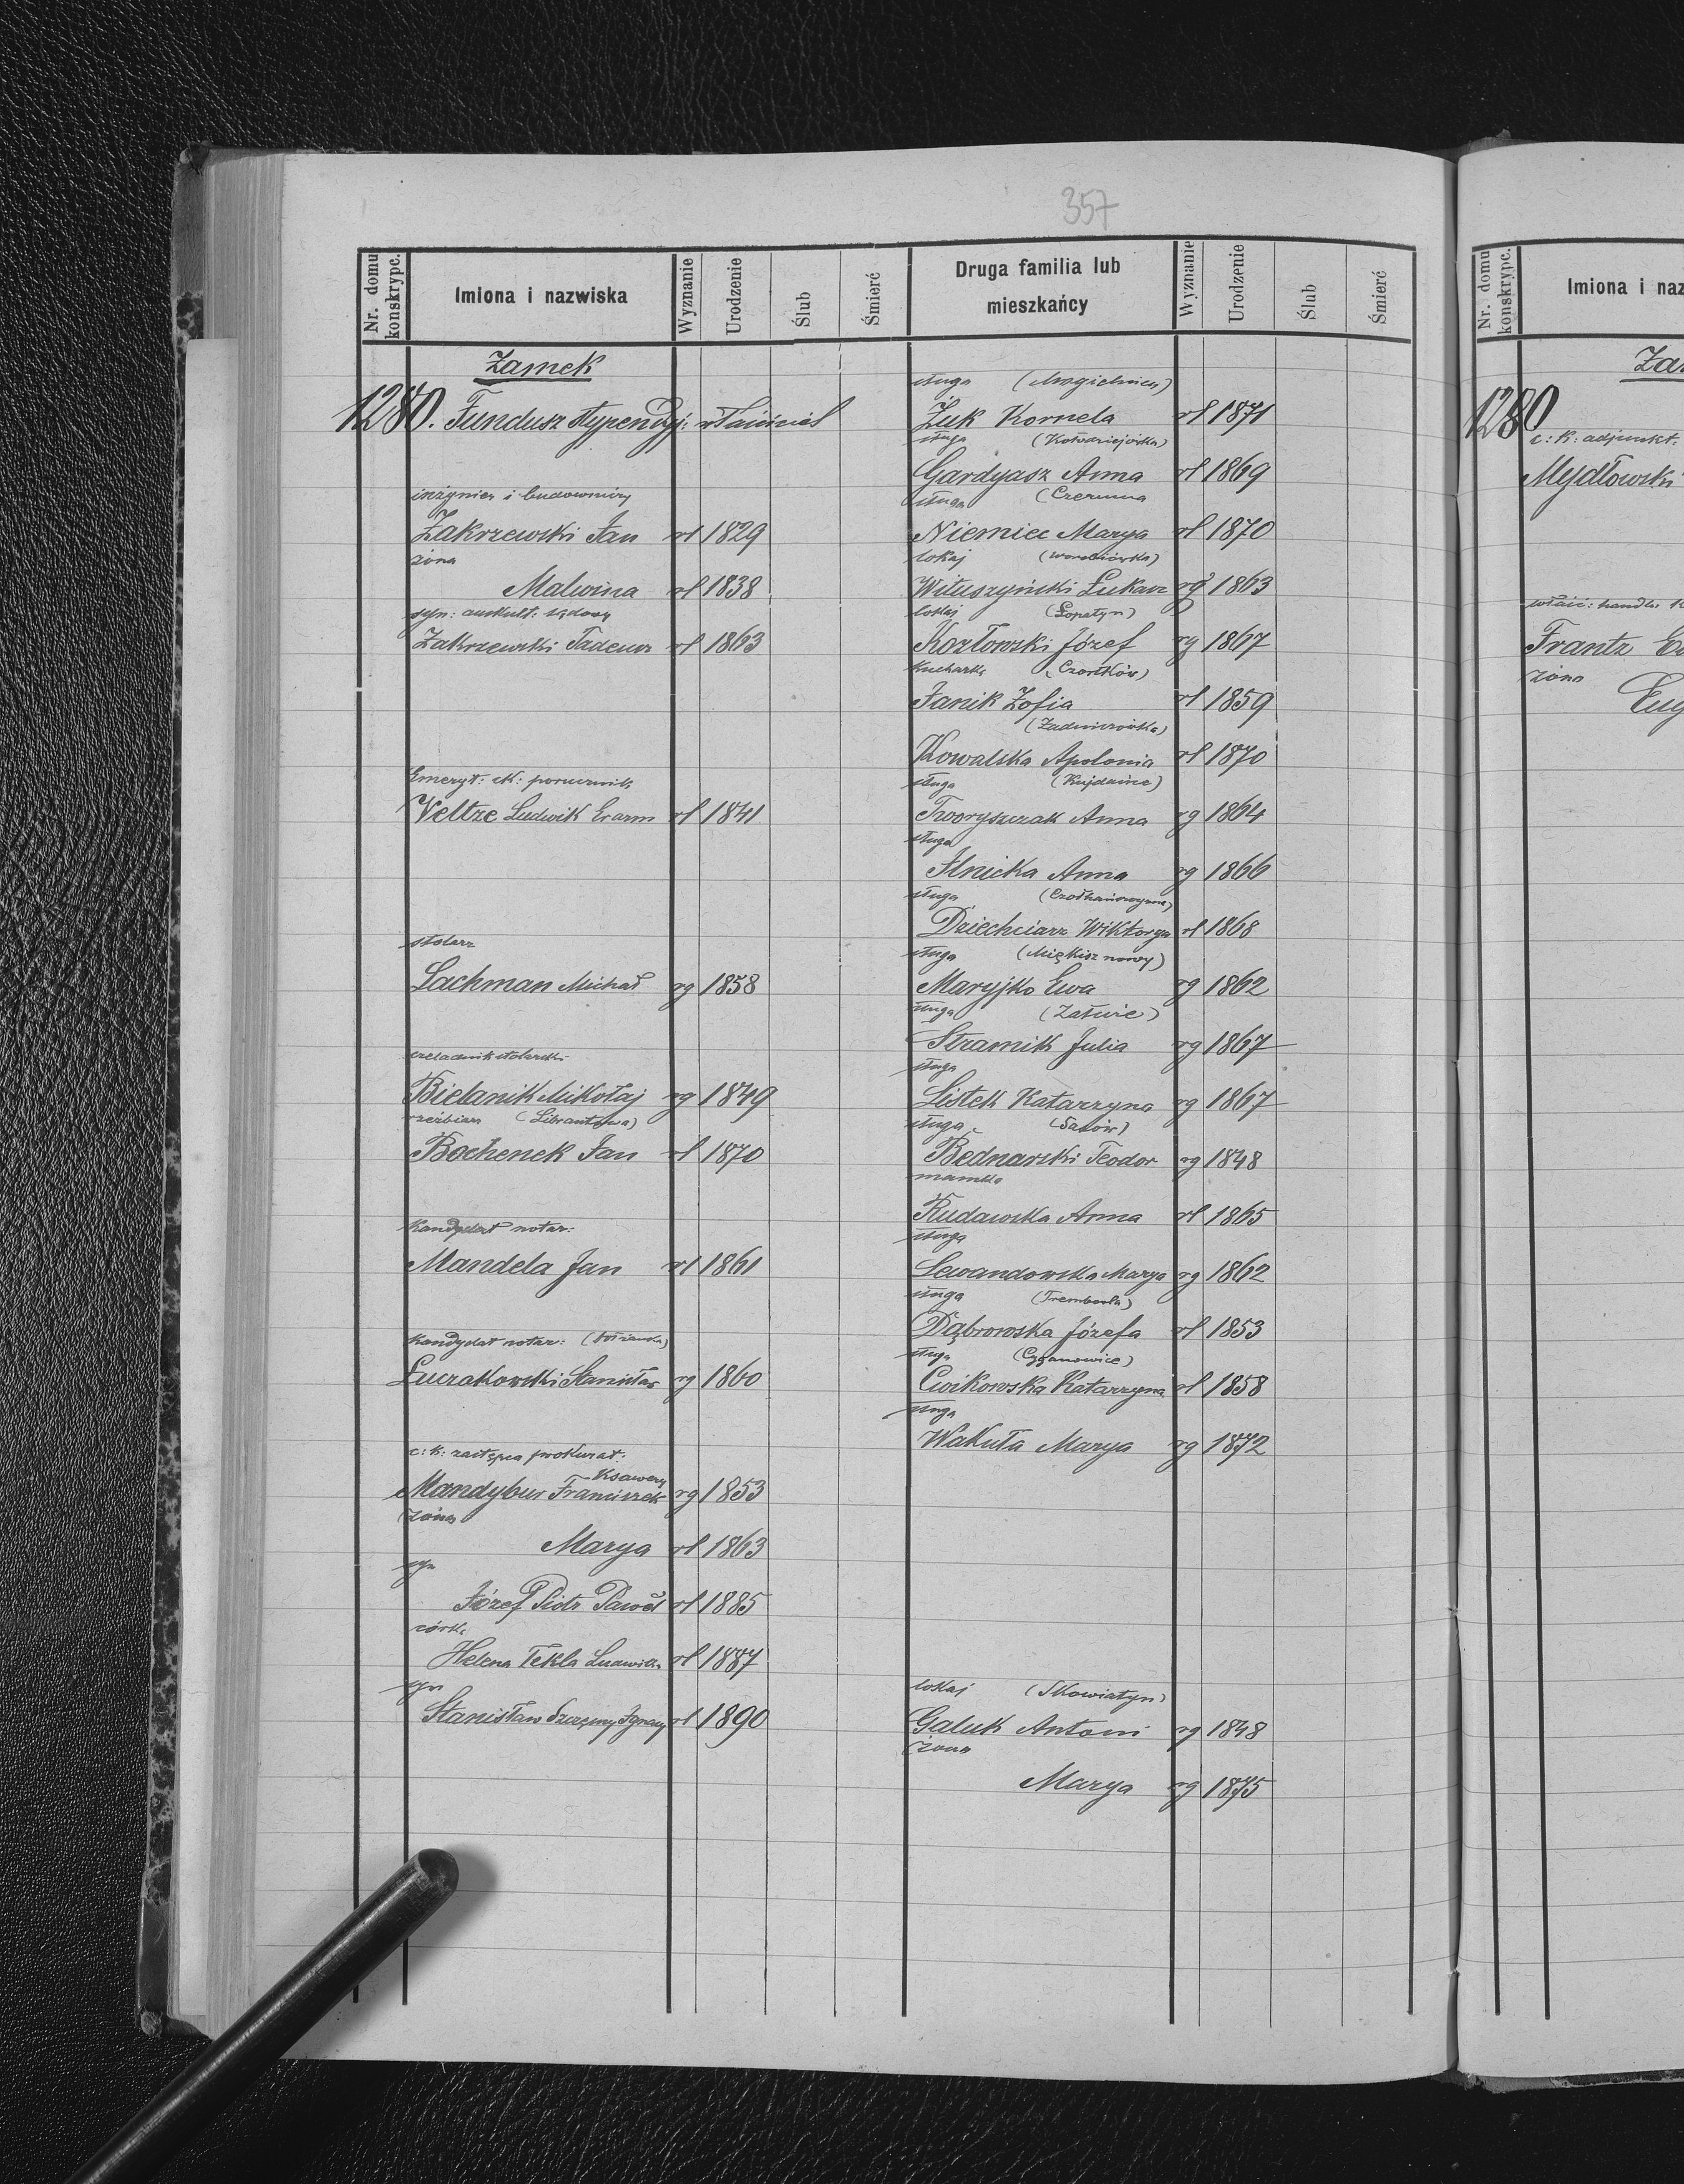 357
Nr. domu konskrypc.
Imiona i nazwiska
Wyznanie
Urodzenie
Ślub
Śmierć
Druga familia lub
mieszkańcy
Wyznanie
Urodzenie
Ślub
Śmierć
Zamek
1280. Fundusz stypendyj: właściciel
inżynier i budowniczy
Zakrzewski Jan rł 1829
żona
Malwina rł 1838
syn: auskult: sądowy
Zakrzewski Tadeusz rł 1863
Emeryt: ck: porucznik
Veltze Ludwik Erazm rł 1841
stolarz
Lachman Michał rg 1858
czeladnik stolarski
Bielanik Mikołaj rg 1849
rzeźbiarz (Librantowa)
Bochenek Jan rł 1870
Kandydat notar:
Mandela Jan rł 1861
Kandydat notar:
Łuczakowski Stanisław rg 1860
c: k: zastępca prokurat:
Ksawery
Mandybur Franciszek rg 1853
żona
Marya rł 1863
syn
Józef Piotr Paweł rł 1885
córka
Helena Tekla Ludwika rł 1887
syn
Stanisław Szczęsny Ignacy rł 1890
sługa
Żuk Kornela rł 1871
sługa (Kołodziejówka)
Gardyasz Anna rł 1869
sługa (Czermna
Niemiec Marya rł 1870
lokaj (Worobiówka)
Wituszyński Łukasz rg 1863
lokaj (Łopatyn)
Kozłowski Józef rg 1867
Kucharka (Czortków)
Janik Zofia rł 1859
(Zadniszówka)
Kowalska Apolonia rł 1870
sługa (Kujdańce)
Tworyszczak Anna rg 1864
sługa
Ilnicka Anna rg 1866
sługa
Dziechciarz Wiktorya rł 1868
sługa (Miękisz nowy)
Maryjko Ewa rg 1862
sługa (Załuże)
Stramik Julia rg 1867
sługa
Listek Katarzyna rg 1867
sługa
Bednarski Teodor rg 1848
mamka
Rudawska Anna rł 1865
sługa
Lewandowska Marya rg 1862
sługa (Trembowla)
Dąbrowska Józefa rł 1853
sługa (Cyganowice)
Cwikowska Katarzyna rł 1858
sługa
Wakuła Marya rg 1872
lokaj (Skowiatyn)
Galuk Antoni rg 1848
żona
Marya rg 1875
Nr. domu konskrypc.
Imiona i naz
Za
1280
c: k: adjunkt.
Mydłowski
właśc: handlu
Frantz
żona
Eug